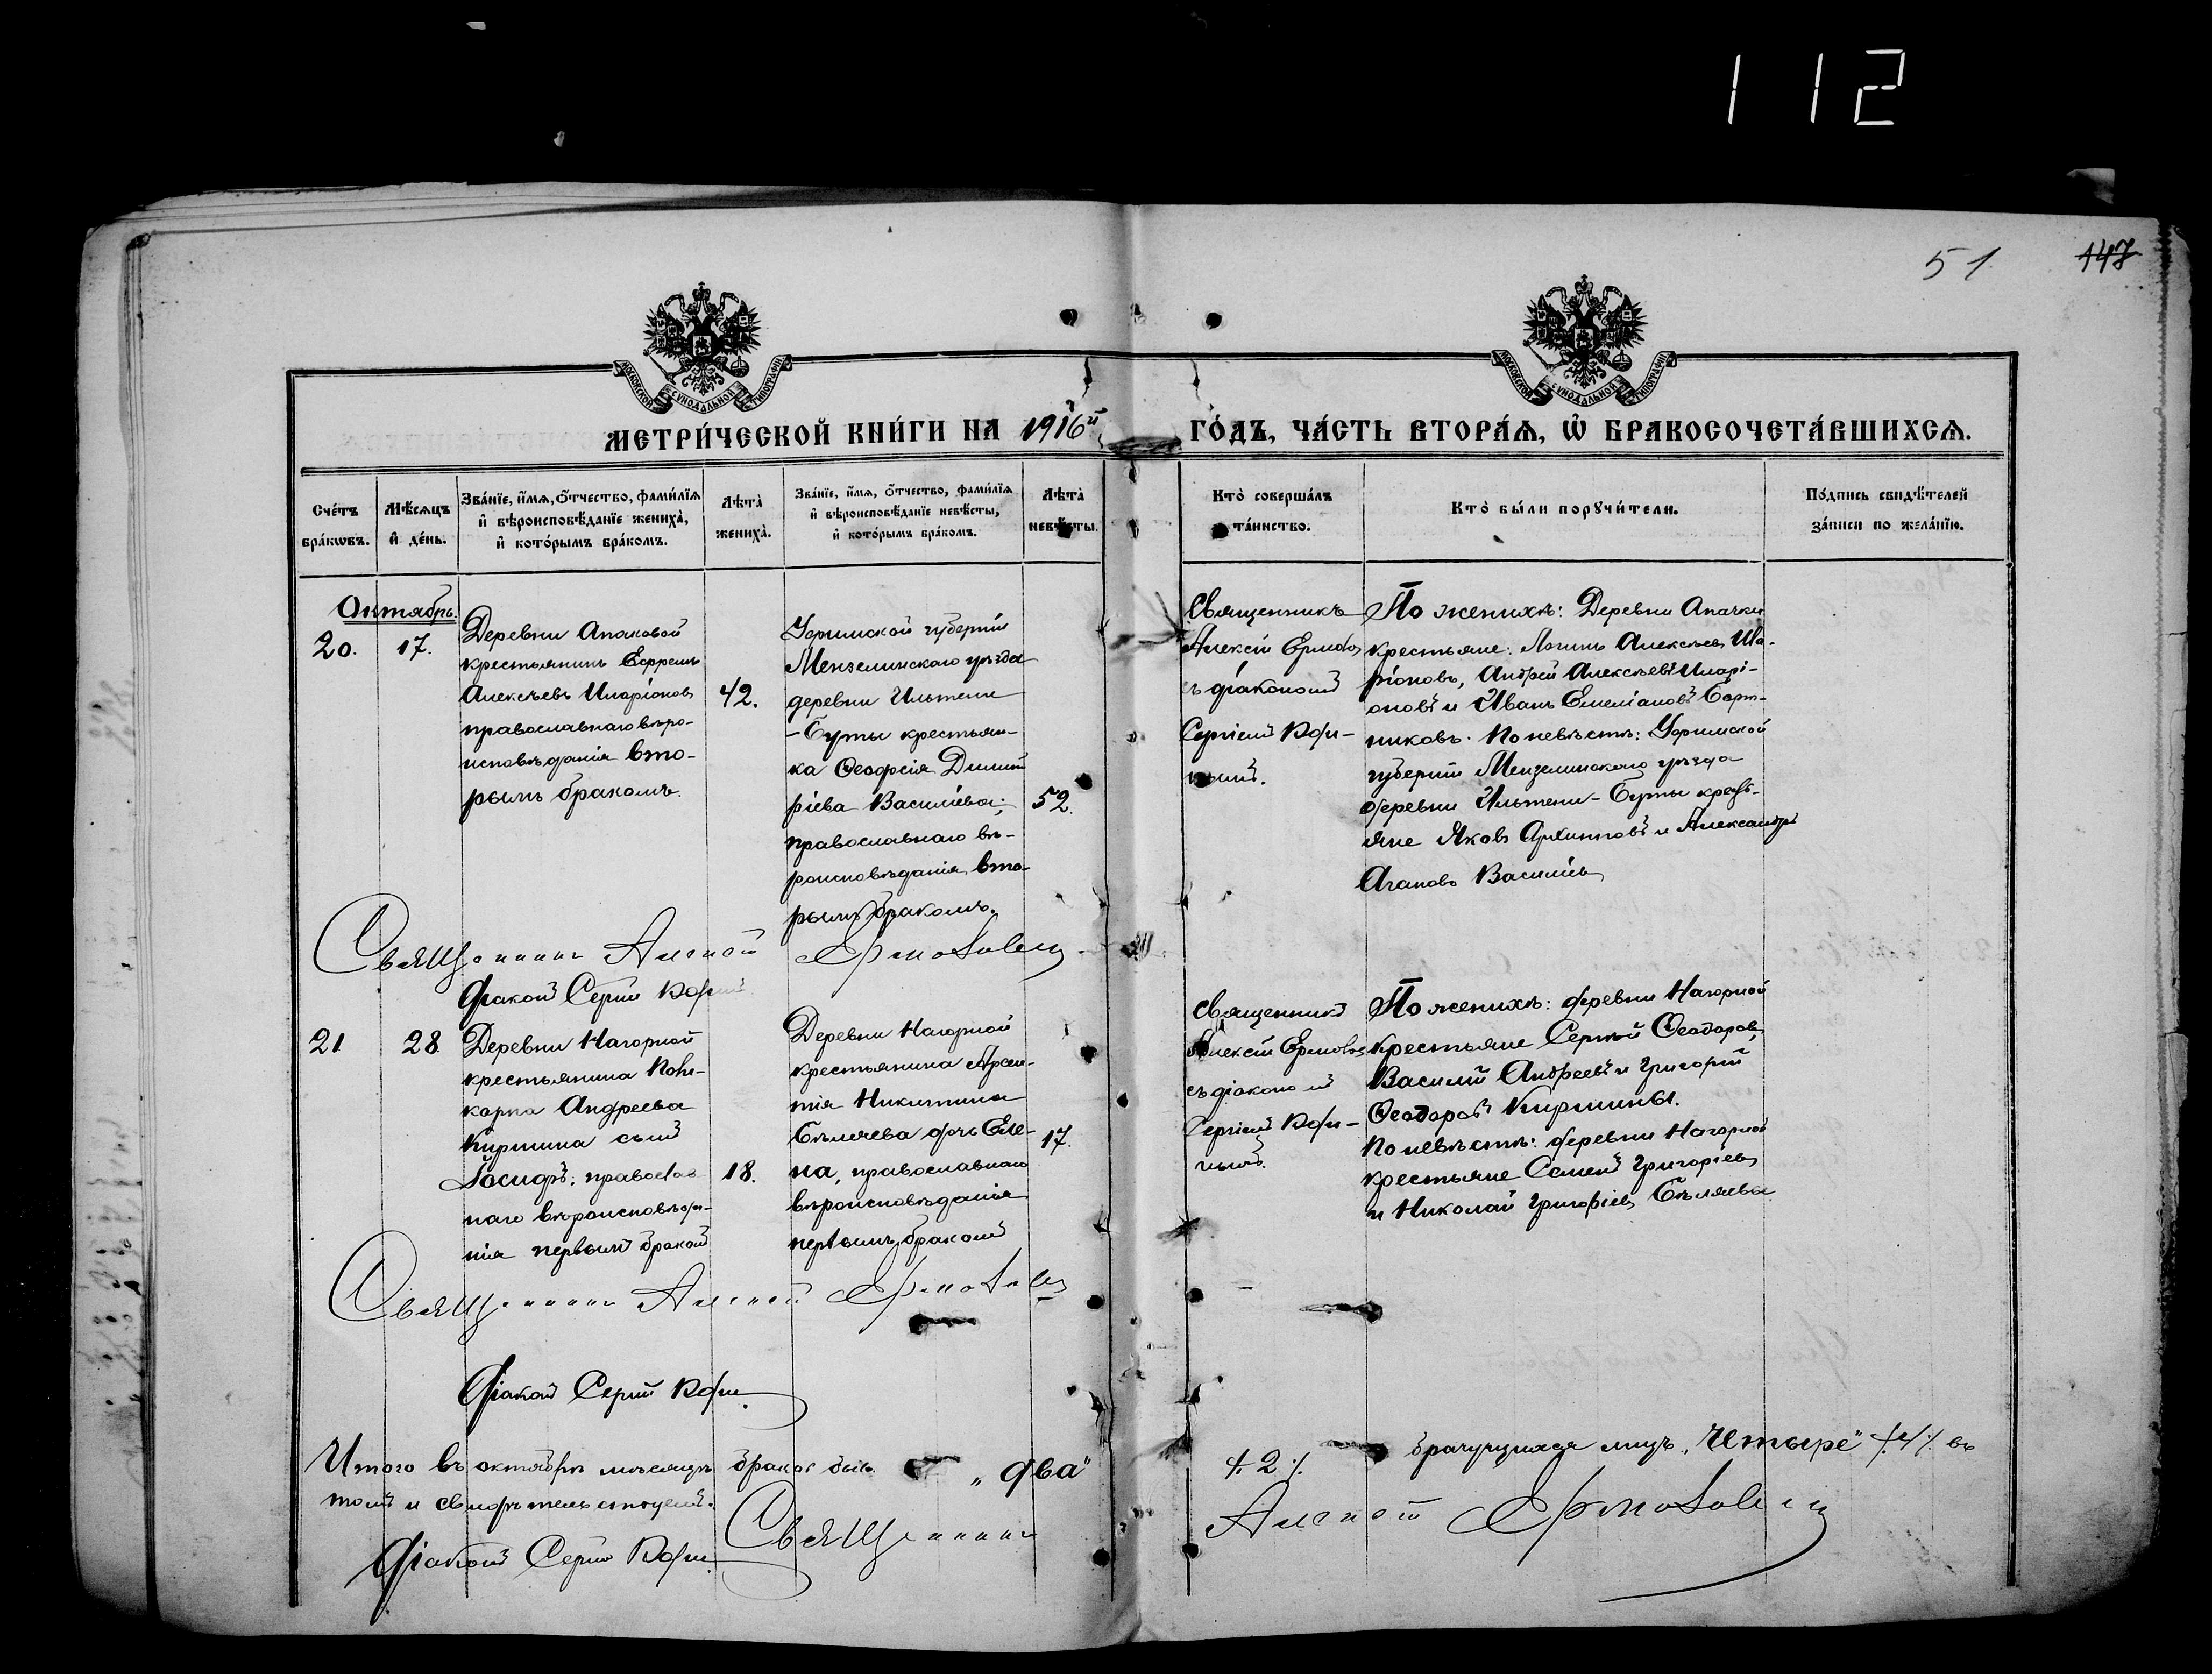 112
51 147
МОСКОВСКОЙ СѴНОДАЛЬНОЙ ТИПОГРАФІИ
МОСКОВСКОЙ СѴНОДАЛЬНОЙ ТИПОГРАФІИ
МЕТРИ́ЧЕСКОЙ КНИ́ГИ НА 1916й ГО́ДЪ, ЧА́СТЬ ВТОРА́Ѧ, Ѡ҆ БРАКОСОЧЕТА́ВШИХСѦ.
Сче́тъ бра́кѡвъ.
Мѣ́сяцъ и҆ де́нь.
Зва́нїе, и҆́мѧ, ѻ҆́тчество, фами́лїѧ и҆ вѣроисповѣ́данїе жениха̀, и҆ кото́рымъ бра́комъ.
Лѣта̀ жениха̀.
Зва́нїе, и҆́мѧ, ѻ҆́тчество, фами́лїѧ и҆ вѣроисповѣ́данїе невѣ́сты, и҆ кото́рымъ бра́комъ.
Лѣта̀ невѣ́сты.
Кто̀ соверша́лъ та́инство.
Кто̀ бы́ли порꙋчи́тели.
По́дпись свидѣ́телей за́писи по жела́нїю.
Октябрь.
20.
17.
Деревни Апаковой
крестьянинъ Ефремъ
Алексѣевъ Иларіоновъ
православнаго вѣро-
исповѣданія вто-
рымъ бракомъ.
42.
Уфимской губерніи
Мензелинскаго уѣзда
деревни Ильтень
-Буты крестьян-
ка Ѳеодосія Димит
ріева Васильева;
православнаго вѣ-
роисповѣданія, вто-
рымъ бракомъ.
52.
Священникъ
Алексій Ермола
съ діакономъ
Сергіемъ
По женихѣ: Деревни
крестьяне: Алексѣевъ Ила-
ріоновъ, Андрей Алексѣевъ Илари-
оновъ и Иванъ Емеліановъ Борт-
никовъ. По невѣстѣ: Уфимской
губерніи Мензелинскаго уѣзда
деревни Ильтень-Буты кресть-
яне Яковъ Архиповъ и Александръ
Агаповъ Васильевъ
Священникъ Алексій
Діаконъ Сергій
21
28
Деревни Нагорной
крестьянина Поли-
карпа Андреева
Киршина сынъ
Іосифъ; православ
наго вѣроисповѣда-
нія первымъ бракомъ
18.
Деревни Нагорной
крестьянина Арсен-
тія Никитина
Бѣляева дочь Еле-
на, православнаго
вѣроисповѣданія
первымъ бракомъ
17.
Священникъ
Алексій
съ діакономъ
Сергіемъ
По женихѣ: деревни Нагорной
крестьяне Сергѣй Ѳеодоровъ,
Василій Андреевъ и Григорій
Ѳеодоровъ Киршины.
По невѣстѣ: деревни Нагорной
крестьяне Семенъ Григоріевъ
и Николай Григоріевъ Бѣляевы
Священникъ Алексій
Діаконъ Сергій
Итого въ октябрѣ мѣсяцѣ браковъ было „два“ /. 2 /. брачущихся лицъ „четыре“ /. 4 /. въ
томъ и свидѣтельствуемъ.
Священникъ Алексій
Діаконъ Сергій